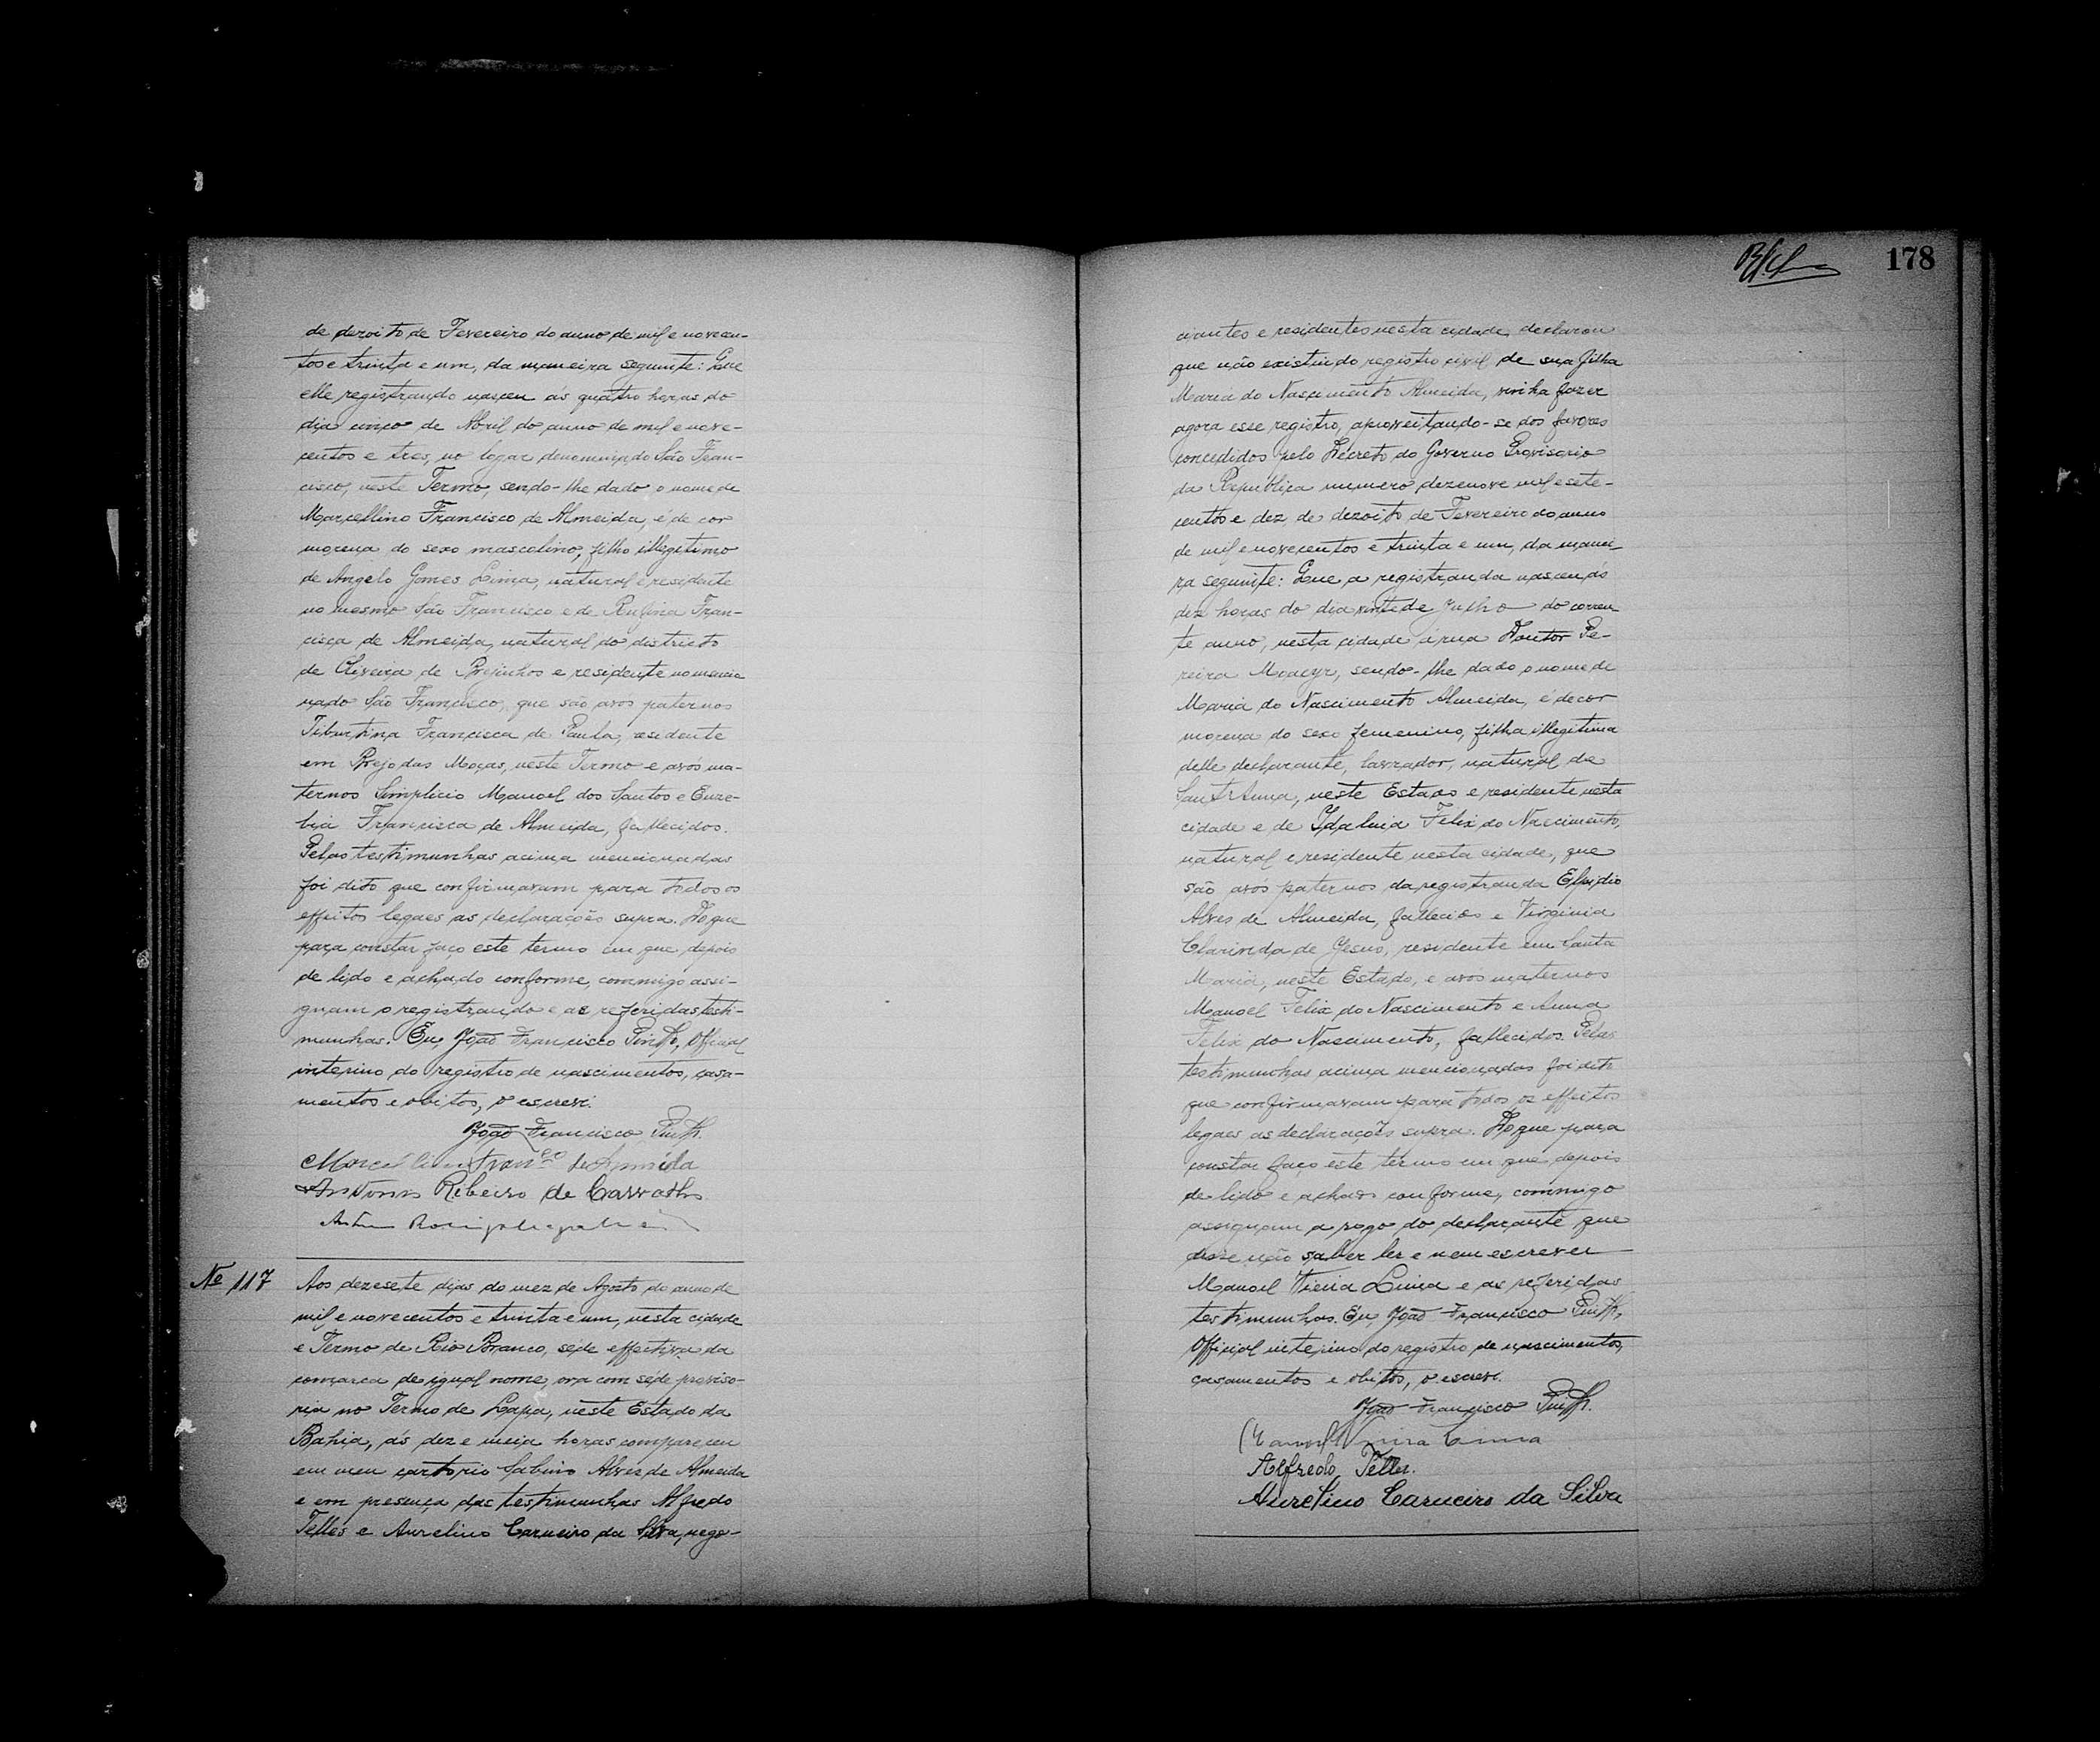 de dezoito de Fevereiro do anno de mil e novecen-
tos e trinta e um, da maneira seguinte: Que
elle registrando nasceu ás quatro horas do
dia cinco de Abril do anno de mil e nove-
centos e tres, no logar denominado São Fran-
cisco, neste Termo, sendo-lhe dado o nome de
Marcellino Francisco de Almeida, é de cor
morena do sexo mascolino, filho illegitimo
de Angelo Gomes Lima, natural e residente
no mesmo São Francisco e de Rufina Fran-
cisca de Almeida, natural do districto
de Oliveira de Brejinhos e residente no mencio
nado São Francisco, que são avos paternos
Tiburtina Francisca de Paula, residente
em Brejo das Moças, neste Termo e avós ma-
ternos Simplicio Manoel dos Santos e Euze-
bia Francisca de Almeida, fallecidos.
Pelas testimunhas acima mencionadas
foi dito que confirmavam para todos os
effeitos legaes as declarações supra. Do que
para constar faço este termo em que depois
de lido e achado conforme, commigo assi-
gnam o registrando e as referidas testi-
munhas. Eu, João Francisco Pinto, Official
interino do registro de nascimentos, casa-
mentos e obitos, o escrevi.
João Francisco Pinto.
Marcelino Franco de Almeida
Antonio Ribeiro de Carvalho
Nº 117 Aos dezesete dias do mez de Agosto do anno de
mil e novecentos e trinta e um, nesta cidade
e Termo de Rio Branco, séde effectiva da
comarca de egual nome, ora com séde proviso-
ria no Termo de Lapa, neste Estado da
Bahia, ás dez e meia horas compareceu
em meu cartorio Sabino Alves de Almeida
e em presença das testimunhas Alfredo
Telles e Aurelino Carneiro da Silva, nego-
178
ciantes e residentes nesta cidade, declarou
que não existindo registro civil de sua filha
Maria do Nascimento Almeida, vinha fazer
agora esse registro, aproveitando-se dos favores
concedidos pelo Decreto do Governo Provisorio
da Republica numero dezenove mil e sete-
centos e dez, de dezoito de Fevereiro do anno
de mil e novecentos e trinta e um, da manei-
ra seguinte: Que a registranda nasceu ás
dez horas do dia vinte de Julho do corren
te anno, nesta cidade á rua Doutor Pe-
reira Moacyr, sendo-lhe dado o nome de
Maria do Nascimento Almeida, é de cor
morena do sexo femenino, filha illegitima
delle declarante, lavrador, natural de
Sant'Anna, neste Estado e residente nesta
cidade e de Idalina Felix do Nascimento,
natural e residente nesta cidade, que
são avós paternos da registranda Elpidio
Alves de Almeida, fallecido e Virginia
Clarinda de Jesus, residente em Santa
Maria, neste Estado, e avos maternos
Manoel Felix do Nascimento e Anna
Felix do Nascimento, fallecidos. Pelas
testimunhas acima mencionadas foi dito
que confirmavam para todos os effeitos
legaes as declarações supra. Do que para
constar faço este termo em que depois
de lido e achado conforme, commigo
assignam a rogo do declarante que
disse não saber ler e nem escrever
Manoel Vieira Lima e as referidas
testimunhas. Eu, João Francisco Pinto,
Official interino do registro de nascimentos,
casamentos e obitos, o escrevi.
João Francisco Pinto.
Manoel Vieira Lima
Alfredo Telles.
Aurelino Carneiro da Silva